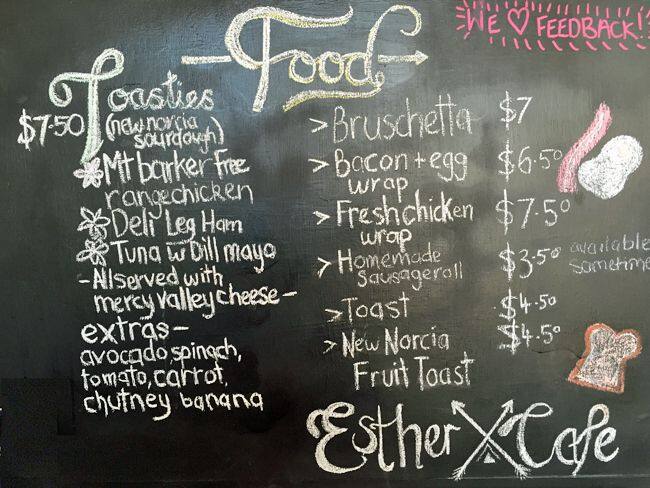 WE ♡ FEEDBACK!
Food
Toasties
$7.50
(new norcia
sourdough)
Mt barker Free
range chicken
Deli Leg Ham
Tuna w Dill mayo
- All served with
mercy valley cheese -
extras -
avocado spinach,
tomato, carrot,
chutney banana
> Bruschetta $7
> Bacon + egg $6.50
wrap
> Fresh chicken $7.50
wrap
> Homemade $3.50 available
sausage roll sometime
> Toast $4.50
> New Norcia $4.50
Fruit Toast
Esther X Cafe